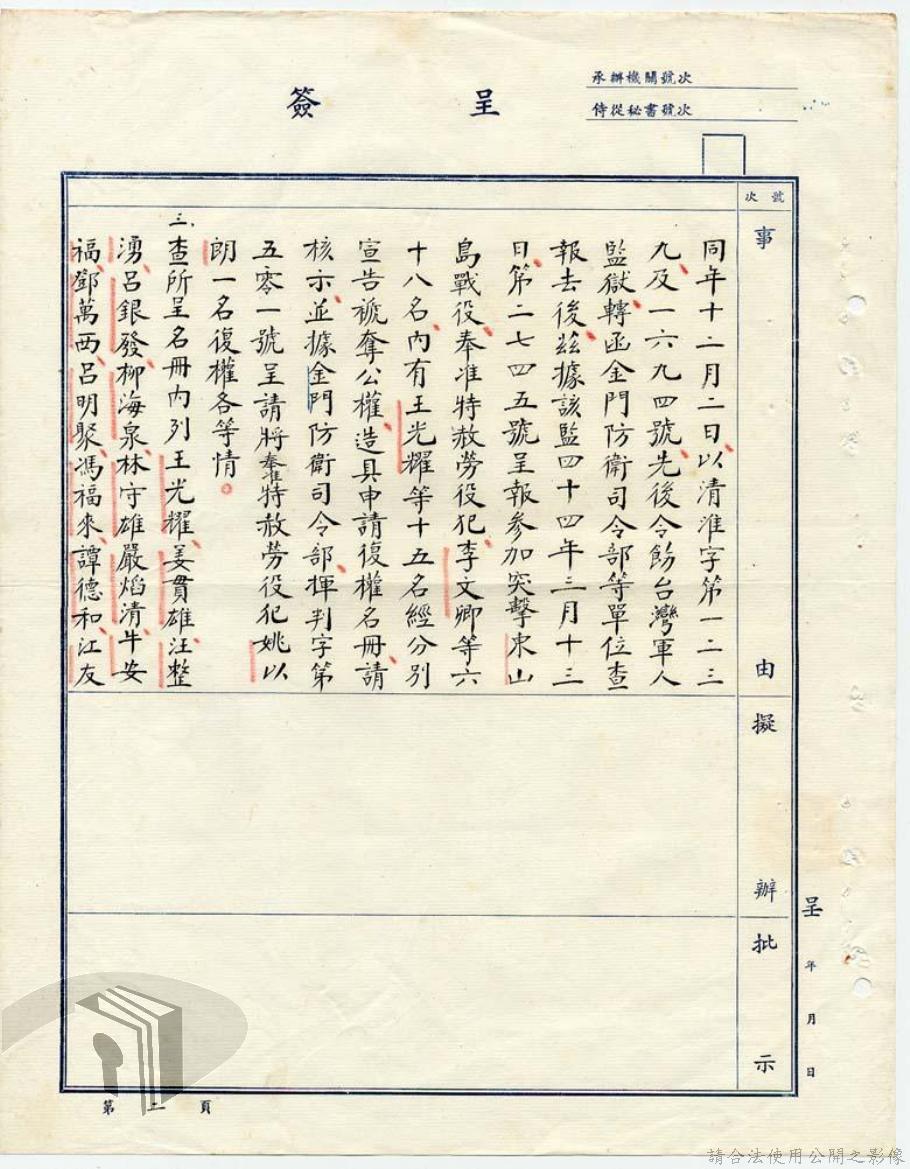 承辦機關號次
侍從秘書號次
簽呈
號次
事由
擬辦
批示
同年十二月二日、以清淮字第一二三
九、及一六九四號、先後令飭台灣軍人
監獄、轉函金門防衛司令部等單位查
報去後、茲據該監四十四年三月十三
日、第二七四五號呈報參加突擊東山
島戰役、奉准特赦勞役犯、李文卿等六
十八名、內有王光耀等十五名經分別
宣告褫奪公權、造具申請復權名冊、請
核示、並據金門防衛司令部、揮判字第
五零一號呈請將奉准特赦勞役犯姚以
朗一名復權各等情。
三、查所呈名冊內列王光耀、姜貫雄、汪整
湧、呂銀發、柳海泉、林守雄、嚴焰清、牛安
福、鄧萬西、呂明聚、馮福來、譚德和、江友
呈 年 月 日
第二頁
請合法使用公開之影像